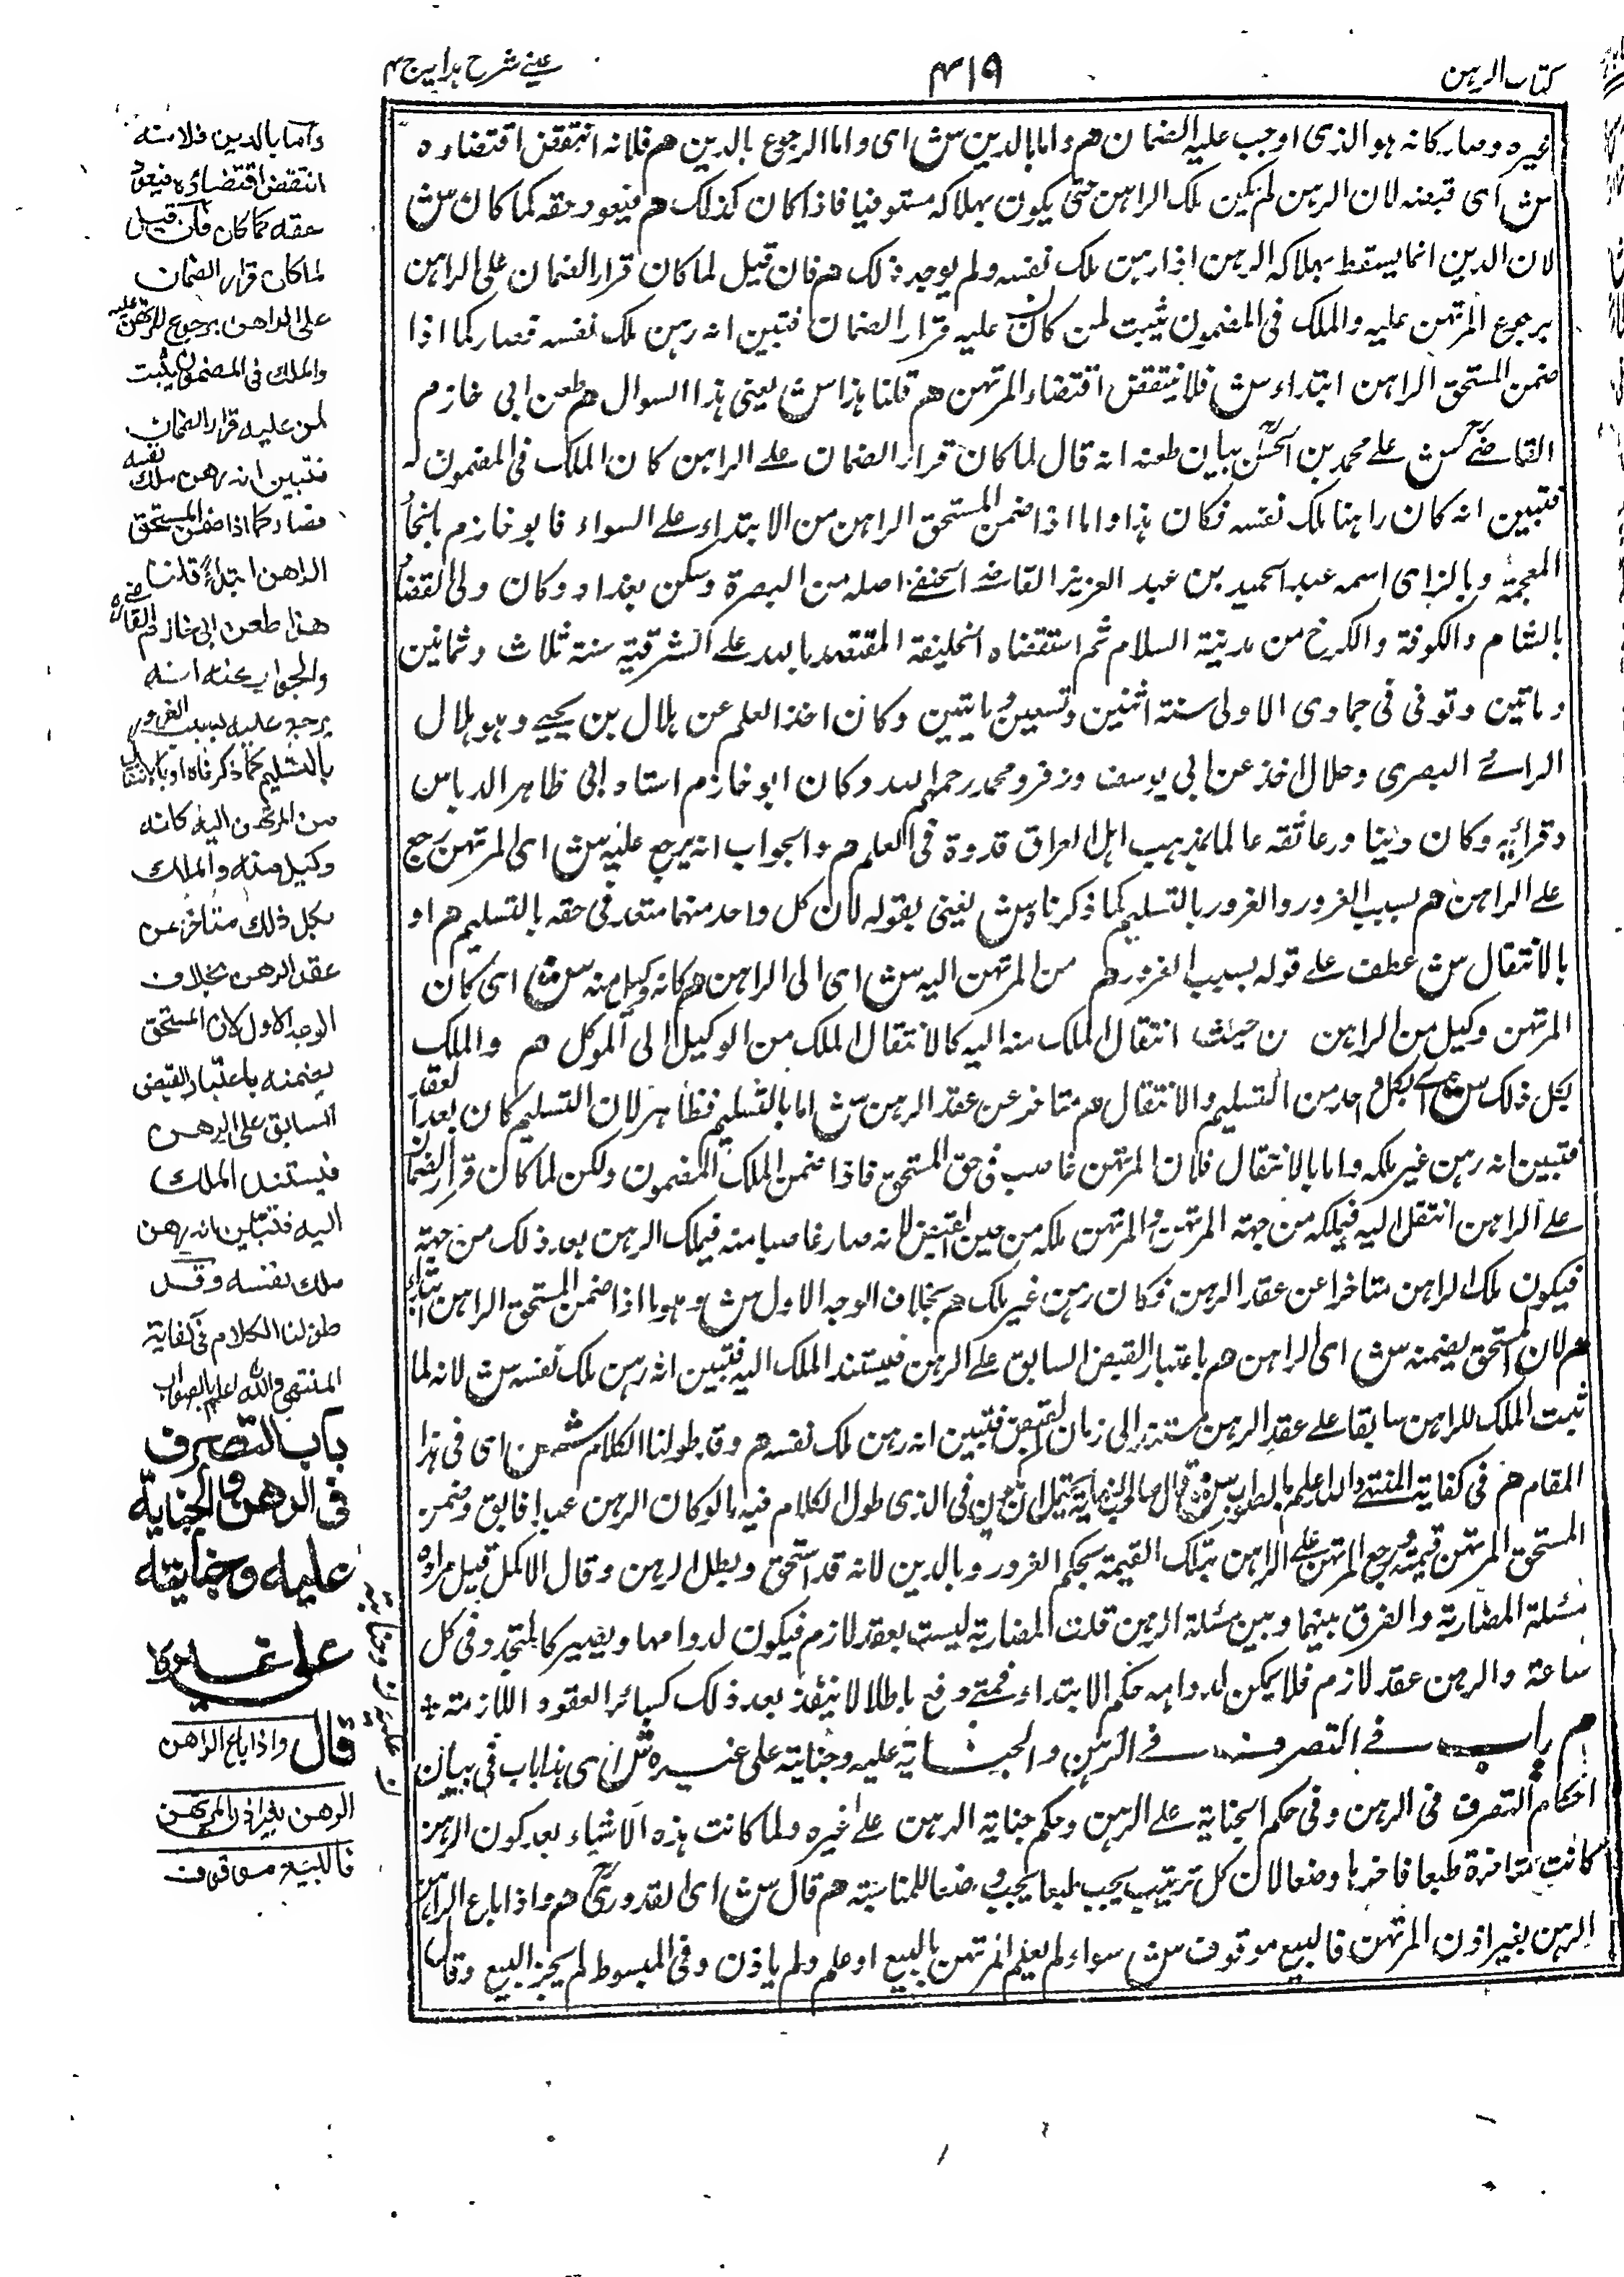 كتاب الرهن
٤١٩
عینے شرح ہدایہ ج ٤
غيره وصار كانه هو الذى اوجب عليه الضمان هم واما بالدين سش اى واما الرجوع بالدين هم فلانه انتقض اقتضاءه
سش اى قبضه لان الرهن لم يكن ملك الراهن حتى يكون بهلاكه مستوفيا فاذا كان كذلك هم فيعود حقه كما كان سش
لان الدين انما يسقط بهلاكه الرهن اذا رهن ملك نفسه ولم يوجد ذلك هم فان قيل لما كان قرار الضمان على الراهن
برجوع المرتهن عليه والملك فى المضمون يثبت لمن كان عليه قرار الضمان فتبين انه رهن ملك نفسه فصار كما اذا
ضمن المستحق الراهن ابتداء سش فلا ينتقض اقتضاء المرتهن هم قلنا هذا سش يعنى هذا السوال هم طعن ابى خازم
القاضے سش علے محمد بن الحسن بيان طعنه انه قال لما كان قرار الضمان علے الراهن كان الملك فى المضمون له
فتبين انه كان راهنا ملك نفسه فكان هذا واما اذا ضمن المستحق الراهن من الابتداء علے السواء فابو خازم بالخاء
المعجمة وبالزاى اسمه عبد الحميد بن عبد العزيز القاضے الحنفے اصله من البصرة وسكن بغداد وكان ولى القضاء
بالشام والكوفة والكرخ من مدينة السلام ثم استقضاه الخليفة المعتضد بالله علے الشرقية سنة ثلاث وثمانين
وماتين وتوفى فى جمادى الاولى سنة اثنين وتسعين وماتين وكان اخذ العلم عن هلال بن يحيے وهو هلال
الرائے البصرى وهلال اخذ عن ابى يوسف وزفر ومحمد رحمهم الله وكان ابو خازم استاد ابى طاهر الدباس
وقرائه وكان دينا ورعا ثقه عالما بمذهب اهل العراق قدوة فى العلم هم والجواب انه يرجع عليه سش اى المرتهن يرجع
علے الراهن هم بسبب الغرور والغرور بالتسليم كما ذكرناه سش يعنى بقوله لان كل واحد منهما متعد فى حقه بالتسليم هم او
بالانتقال سش عطف علے قوله بسبب الغرور هم من المرتهن اليه سش اى الى الراهن هم كانه وكيل منه سش اى كان
المرتهن وكيل من الراهن من حيث انتقال الملك منه اليه كالانتقال الملك من الوكيل الى الموكل هم والملك
بكل ذلك سش اى بكل واحد من التسليم والانتقال هم متاخر عن عقد الرهن سش اما بالتسليم فظاهر لان التسليم كان بعد العقد
فتبين انه رهن غير ملكه واما بالانتقال فلان المرتهن غاصب فى حق المستحق فاذا ضمن الملك المضمون ولكن لما كان قرار الضمان
علے الراهن انتقل اليه فيملكه من جهة المرتهن والمرتهن ملكه من حين القبض لانه صار غاصبا منه فيملك الرهن بعد ذلك من جهته
فيكون ملك الراهن متاخرا عن عقد الرهن فكان رهن غير ملك هم بخلاف الوجه الاول سش وهو ما اذا ضمن المستحق الراهن ابتداء
هم لان المستحق يضمنه سش اى الراهن هم باعتبار القبض السابق علے الرهن فيستند الملك اليه فتبين انه رهن ملك نفسه سش لانه لما
ثبت الملك للراهن سابقا علے عقد الرهن مستندا الى زمان القبض فتبين انه رهن ملك نفسه هم وقد طولنا الكلام سش اى فى هذا
المقام هم فى كفاية المنتهے والله اعلم بالصواب سش قال صاحب النهاية يحتمل ان يكون فى الذى طول الكلام فيه ما لو كان الرهن عبدا فابق وضمن
المستحق المرتهن قيمته ورجع المرتهن علے الراهن بتلك القيمة بحكم الغرور وبالدين لانه قد استحق وبطل الرهن وقال الاكمل قيل مراده
مسئلة المضاربة والفرق بينهما وبين مسئلة الرهن قلت المضاربة ليست بعقد لازم فيكون لدوامها ويصير كالمتجدد فى كل
ساعة والرهن عقد لازم فلا يمكن لدوامه حكم الابتداء فمتے وقع باطلا لا ينفذ بعد ذلك كسائر العقود اللازمة +
هم باب فے التصرف فے الرهن والجناية عليه وجنايته على غيره سش اى هذا باب فى بيان
احكام التصرف فى الرهن وفى حكم الجناية علے الرهن وحكم جناية الرهن علے غيره ولما كانت هذه الاشياء بعد كون الرهن
كانت متاخرة طبعا فاخرها وضعا لان كل ترتيب يجب طبعا يجب وضعا للمناسبة هم قال سش اى القدورى هم واذا باع الراهن
الرهن بغير اذن المرتهن فالبيع موقوف سش سواء لم يعلم المرتهن بالبيع او علم ولم ياذن وفى المبسوط لم يجز البيع وقال
واما بالدين فلانه
انتقض اقتضاؤه فيعود
حقه كما كان فان قيل
لما كان قرار الضمان
على الراهن برجوع المرتهن عليه
والملك فى المضمون يثبت
لمن عليه قرار الضمان
فتبين انه رهن ملك نفسه
فصار كما اذا ضمن المستحق
الراهن ابتداءً قلنا
هذا طعن ابى خازم القاضے
والجواب عنه انه
يرجع عليه بسبب الغرور
بالتسليم كما ذكرناه او بالانتقال
من المرتهن اليه كانه
وكيل منه والملك
بكل ذلك متاخر عن
عقد الرهن بخلاف
الوجه الاول لان المستحق
يضمنه باعتبار القبض
السابق على الرهن
فيستند الملك
اليه فتبين انه رهن
ملك نفسه وقد
طولنا الكلام فى كفاية
المنتهى والله اعلم بالصواب
باب التصرف
فى الرهن والجناية
عليه وجنايته
على غيره
قال واذا باع الراهن
الرهن بغير اذن المرتهن
فالبيع موقوف